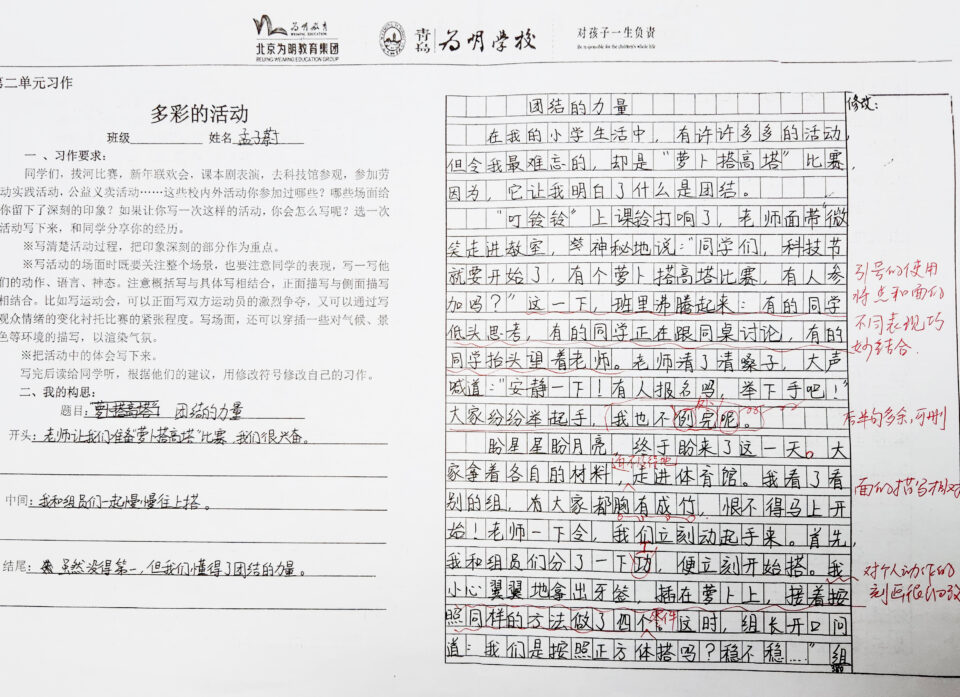 为明教育
WEIMING EDUCATION
北京为明教育集团
BEIJING WEIMING EDUCATION GROUP
青岛 为明学校
对孩子一生负责
Be responsible for the children's whole life
第二单元习作
多彩的活动
班级 姓名 孟子蔚
一、习作要求:
同学们,拔河比赛,新年联欢会,课本剧表演,去科技馆参观,参加劳
动实践活动,公益义卖活动……这些校内外活动你参加过哪些?哪些场面给
你留下了深刻的印象?如果让你写一次这样的活动,你会怎么写呢?选一次
活动写下来,和同学分享你的经历。
※写清楚活动过程,把印象深刻的部分作为重点。
※写活动的场面时既要关注整个场景,也要注意同学的表现,写一写他
们的动作、语言、神态。注意概括写与具体写相结合,正面描写与侧面描写
相结合。比如写运动会,可以正面写双方运动员的激烈争夺,又可以通过写
观众情绪的变化衬托比赛的紧张程度。写场面,还可以穿插一些对气候、景
色等环境的描写,以渲染气氛。
※把活动中的体会写下来。
写完后读给同学听,根据他们的建议,用修改符号修改自己的习作。
二、我的构思:
题目: 萝卜搭高塔 团结的力量
开头:老师让我们准备“萝卜搭高塔”比赛,我们很兴奋。
中间:我和组员们一起慢慢往上搭。
结尾:虽然没得第一,但我们懂得了团结的力量。
团结的力量
修改:
在我的小学生活中,有许许多多的活动,
但令我最难忘的,却是“萝卜搭高塔”比赛,
因为,它让我明白了什么是团结。
“叮铃铃”上课铃打响了,老师面带微
笑走进教室,神秘地说:“同学们,科技节
就要开始了,有个萝卜搭高塔比赛,有人参
加吗?”这一下,班里沸腾起来:有的同学
低头思考,有的同学正在跟同桌讨论,有的
同学抬头望着老师。老师清了清嗓子,大声
喊道:“安静一下!有人报名吗,举下手吧!”
大家纷纷举起手,我也不例完呢。
盼星星盼月亮,终于盼来了这一天。大
家拿着各自的材料,走进体育馆。我看了看
别的组,有大家都胸有成竹,恨不得马上开
始!老师一下令,我们立刻动起手来。首先,
我和组员们分了一下功,便立刻开始搭。我
小心翼翼地拿出牙签,插在萝卜上,接着按
照同样的方法做了四个 零件 这时,组长开口问
道:我们是按照正方体搭吗?稳不稳……”组
引号的使用
特点和面们
不同表现巧
妙结合.
后半句多余,可删